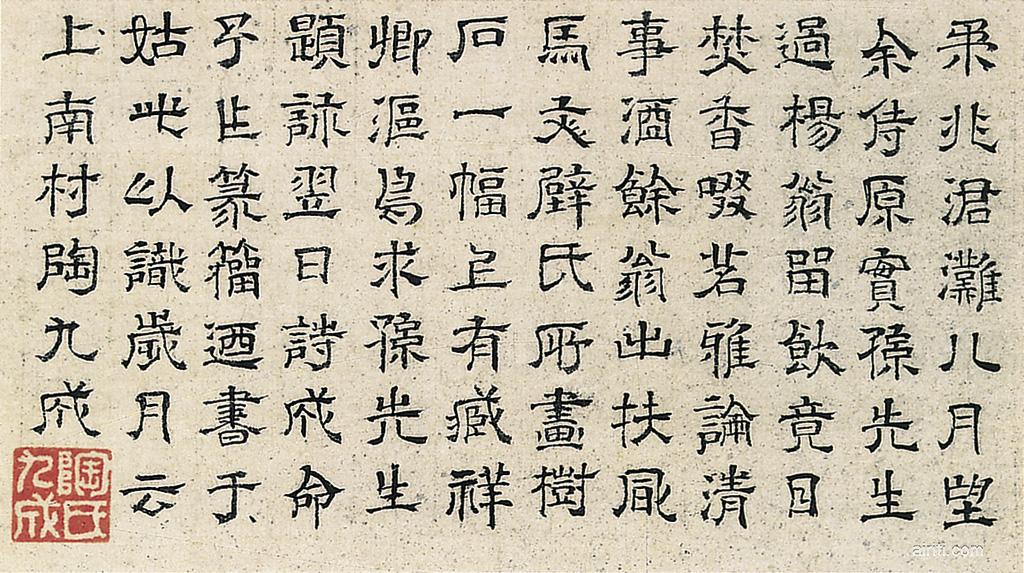 柔兆涒灘八月望
余侍原實孫先生
過楊翁留飲竟日
焚香啜茗雅論清
事酒餘翁出扶風
馬文璧氏所畫樹
石一幅上有臧祥
卿漚求孫先生
題詠翌日詩成命
予乍篆籀迺書于
姑此以識歲月云
上南村陶九成
陶氏九成